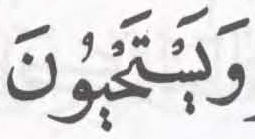 وَيَسْتَحْيُونَ